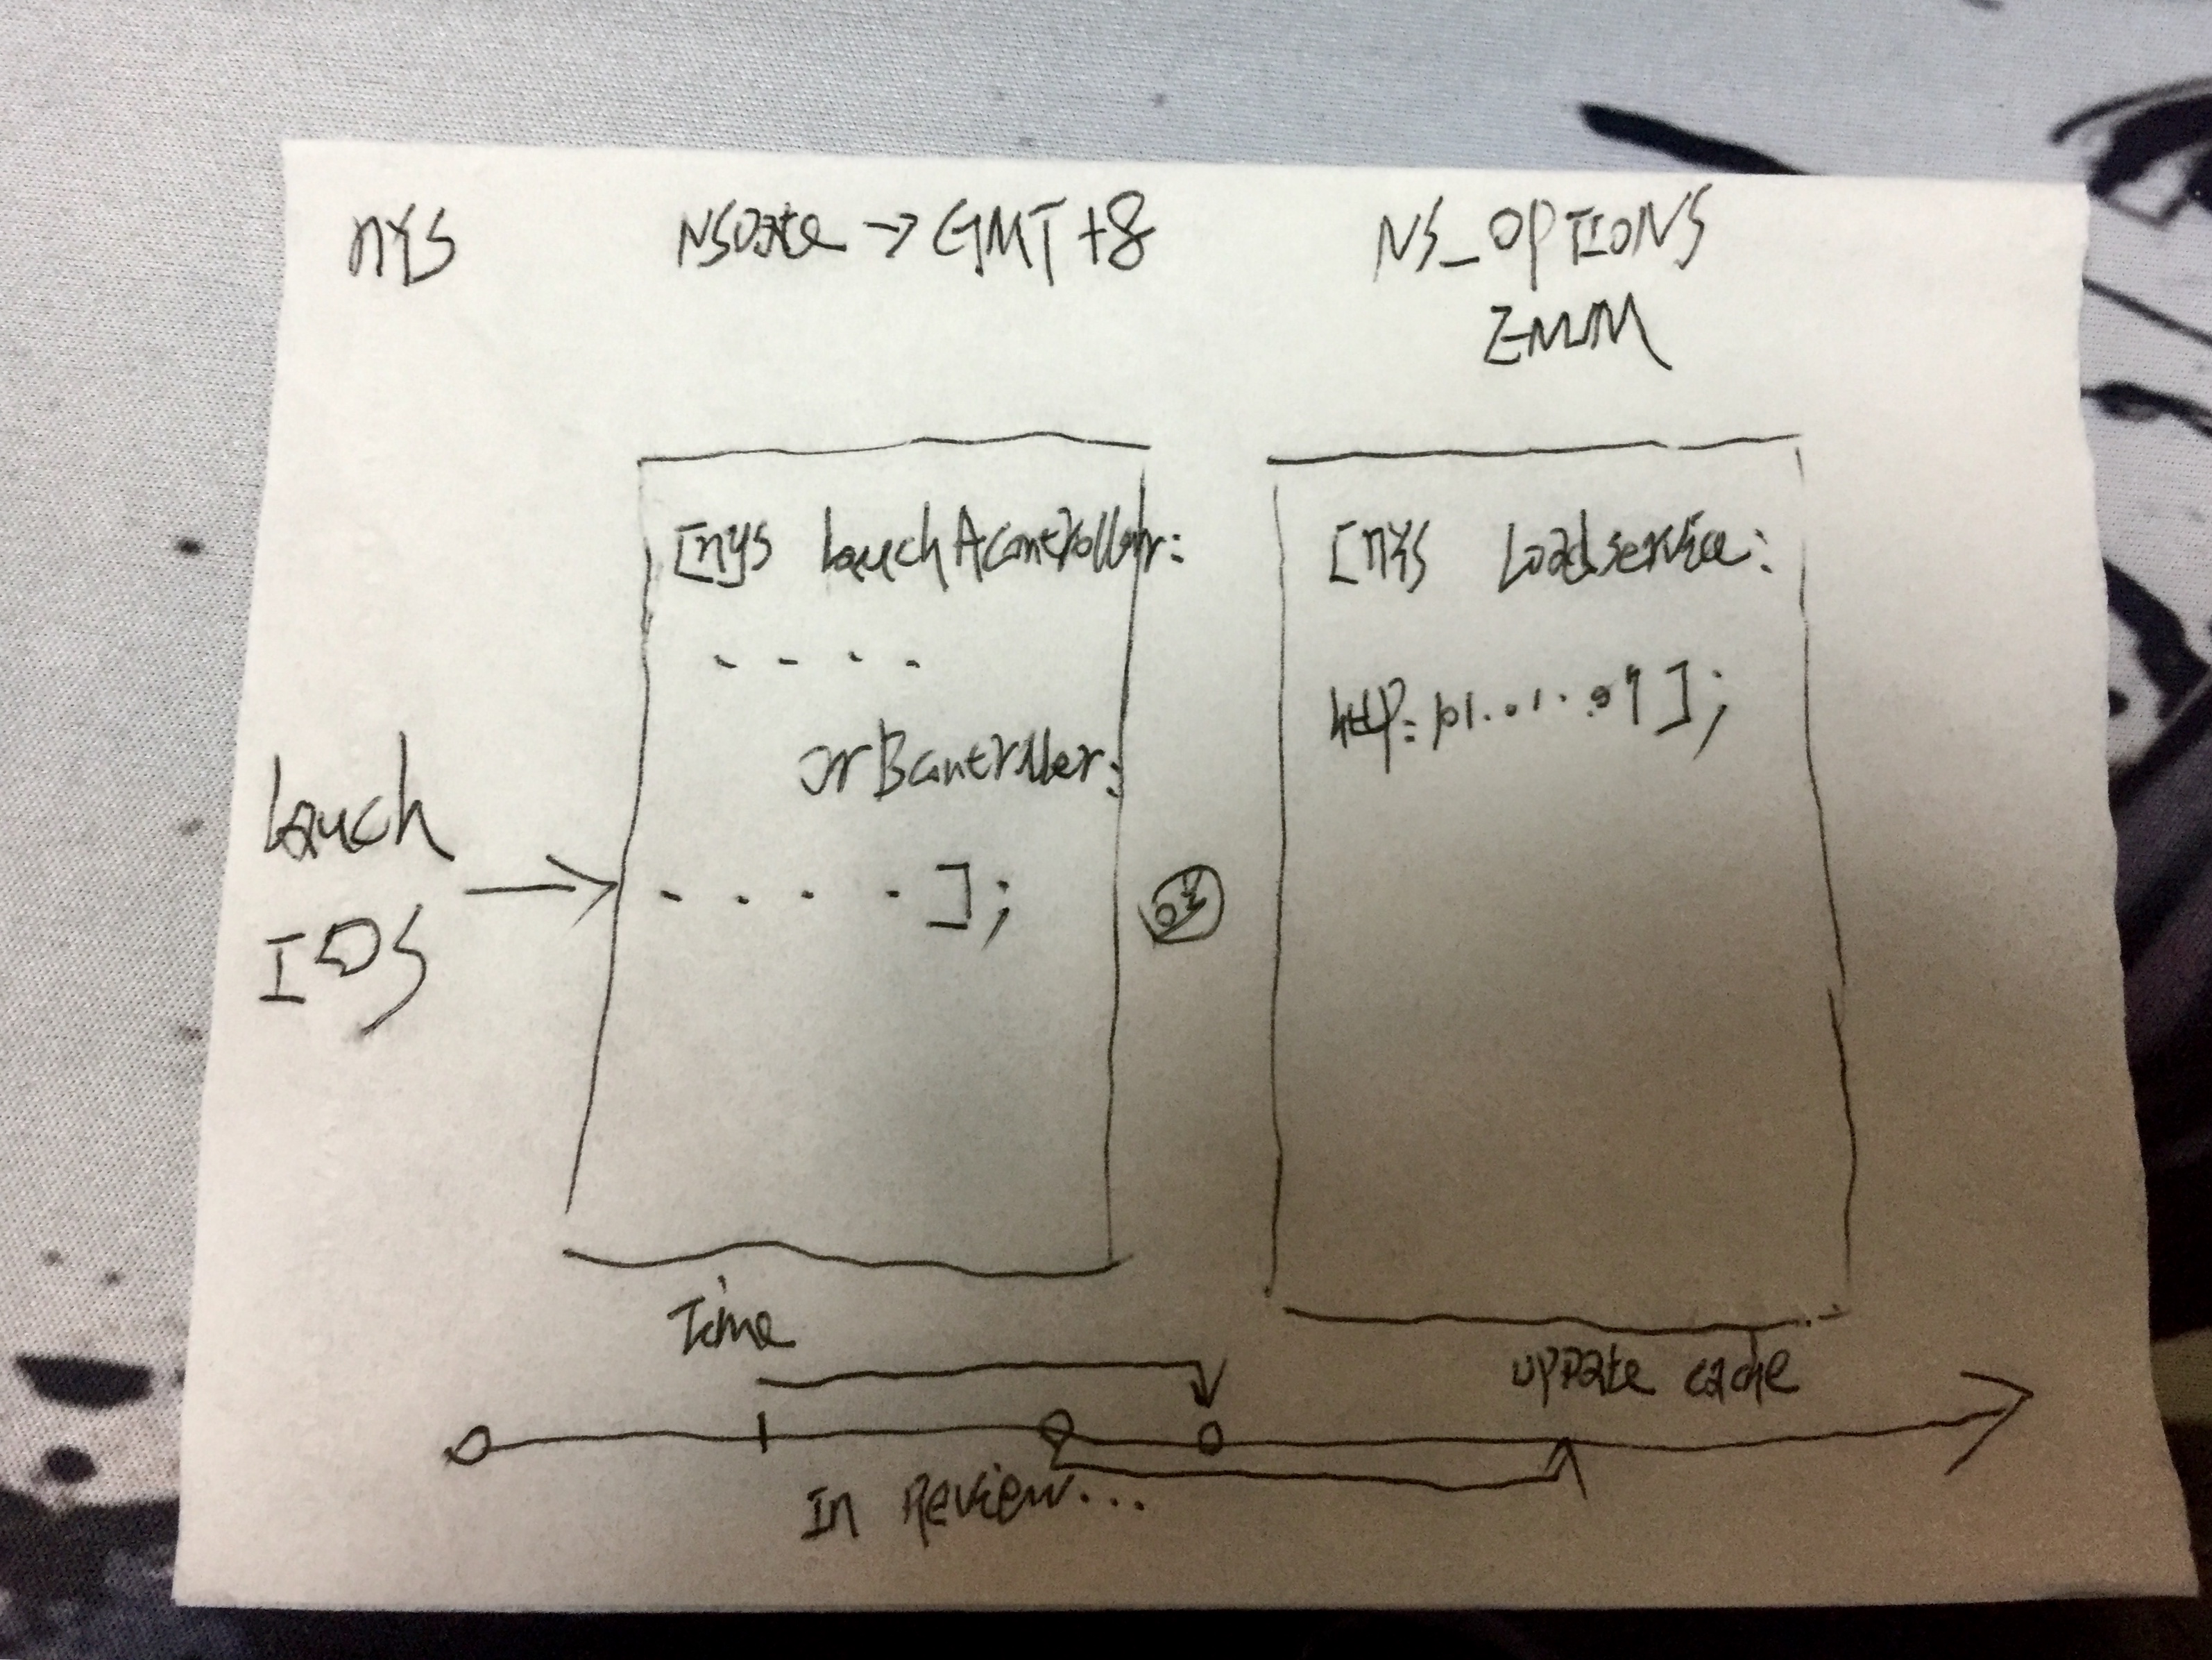 nYS
NSDate → GMT+8
NS_OPTIONS
[nys lauchAcontroller:
. . . .
orBcontroller:
. . . . ];
[nYS Loadservice:
Lauch
IOS
Time
update cache
In Review...